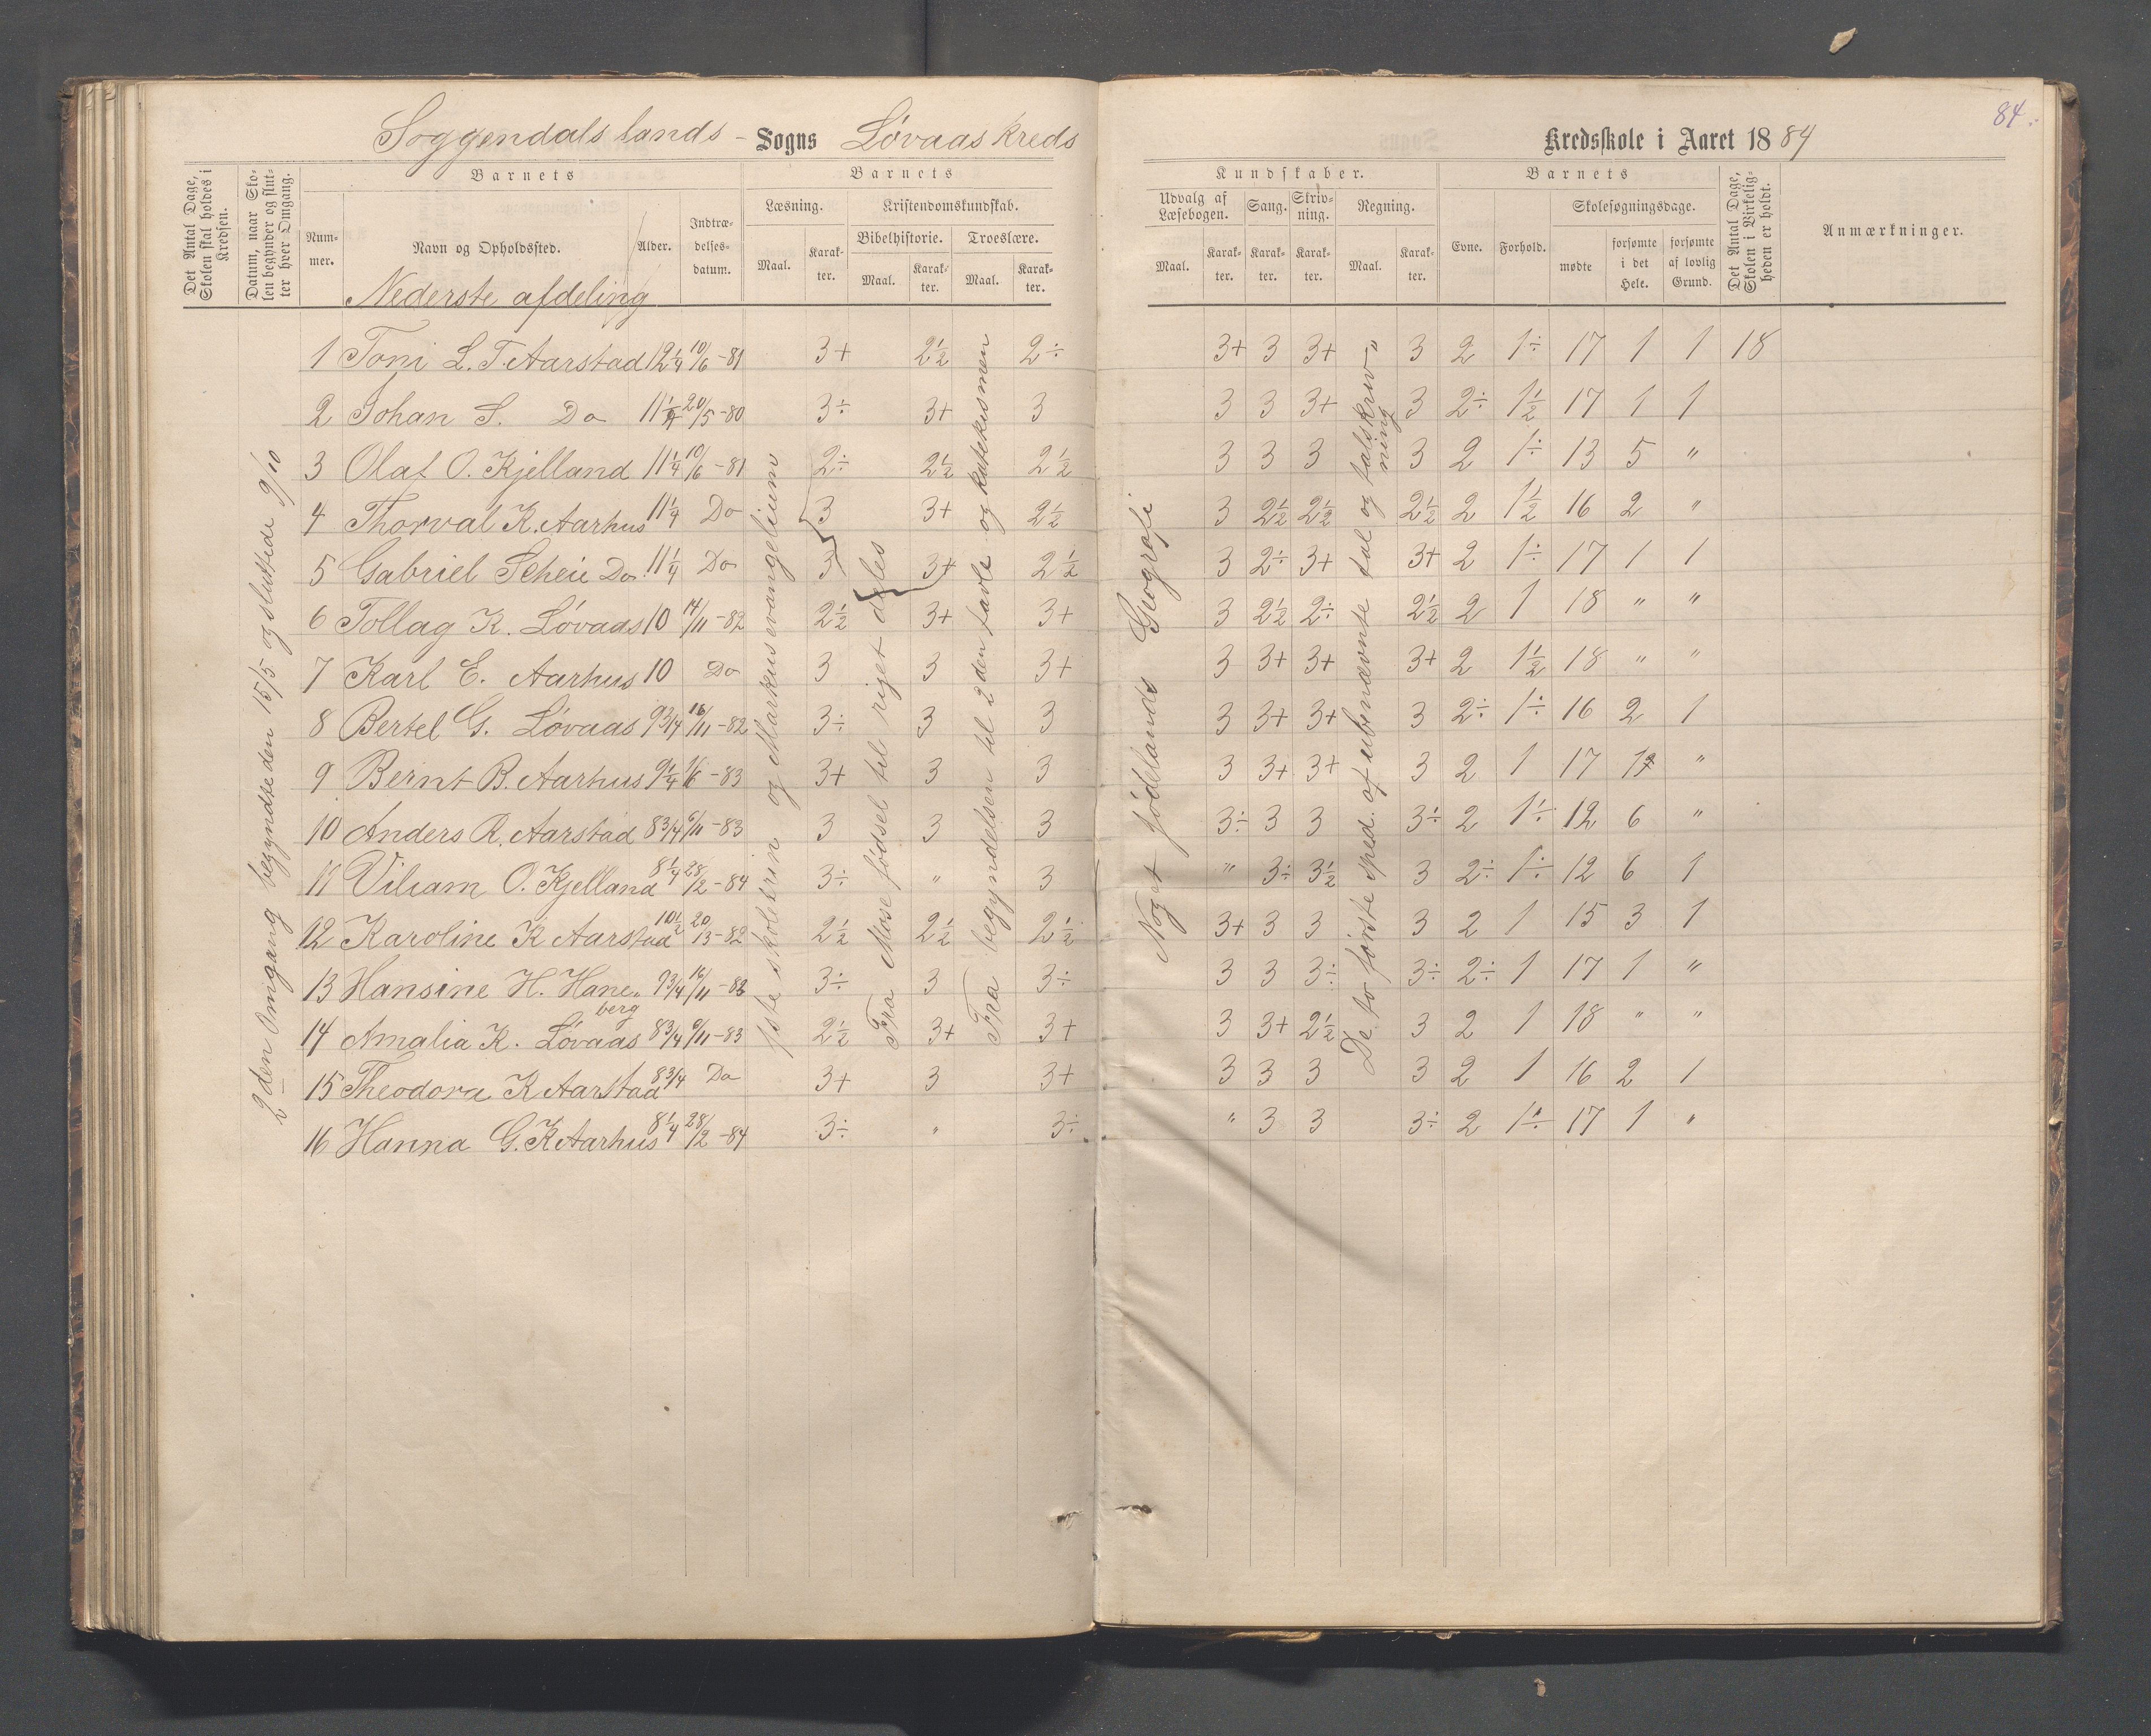 84.
Soggendals lands - Sogns Løvaas kreds Kredsskole i Aaret 1884
Det Antal Dage, Skolen skal holdes i Kredsen.
Datum, naar Skolen begynder og slutter hver Omgang.
Barnets
Nummer.
Navn og Opholdssted.
Alder.
Indtrædelsesdatum.
Barnets
Læsning.
Maal.
Karakter.
Kristendomskundskab.
Bibelhistorie.
Maal.
Karakter.
Troeslære.
Maal.
Karakter.
Kundskaber.
Udvalg af Læsebogen.
Maal.
Karakter.
Sang.
Karakter.
Skrivning.
Karakter.
Regning.
Maal.
Karakter.
Barnets
Evne.
Forhold.
Skolesøgningsdage.
mødte
forsømte i det Hele.
forsømte af lovlig Grund.
Det Antal Dage, Skolen i Virkeligheden er holdt.
Anmærkninger.
Nederste afdeling
2den Omgang begyndte den 15/5 og sluttede 9/10
1ste skoletrin og Markus evangelium
Fra Mose fødsel til riget deles
Fra begyndelsen til 2den tavle og katekismen
Noget fødelands Geografi
De to første sped. af ubenævnte tal og talskrivning
1 Toni L. T. Aarstad 12 1/4 10/6-81 3+ 2 1/2 2÷ 3+ 3 3+ 3 2 1÷ 17 1 1 18
2 Johan S. Do 11 1/4 20/5-80 3÷ 3+ 3 3 3 3+ 3 2÷ 1 1/2 17 1 1
3 Olaf O. Kjelland 11 1/4 10/6-81 2÷ 2 1/2 2 1/2 3 3 3 3 2 1÷ 13 5 "
4 Thorval K. Aarhus 11 1/4 Do 3 3+ 2 1/2 3 2 1/2 2 1/2 2 1/2 2 1 1/2 16 2 "
5 Gabriel Scheie Do. 11 1/4 Do 3 3+ 2 1/2 3 2÷ 3+ 3+ 2 1÷ 17 1 1
6 Tollag K. Løvaas 10 14/11-82 2 1/2 3+ 3+ 3 2 1/2 2÷ 2 1/2 2 1 18 " "
7 Karl E. Aarhus 10 Do 3 3 3+ 3 3+ 3+ 3+ 2 1 1/2 18 " "
8 Bertel G. Løvaas 9 3/4 16/11-82 3÷ 3 3 3 3+ 3+ 3 2÷ 1÷ 16 2 1
9 Bernt B. Aarhus 9 1/4 1/6-83 3+ 3 3 3 3+ 3+ 3 2 1 17 1 "
10 Anders R. Aarstad 8 3/4 6/11-83 3 3 3 3÷ 3 3 3÷ 2 1÷ 12 6 "
11 Viliam O. Kjelland 8 1/4 28/2-84 3÷ " 3 " 3÷ 3 1/2 3 2÷ 1÷ 12 6 1
12 Karoline K Aarstad 10 1/2 20/3-82 2 1/2 2 1/2 2 1/2 3+ 3 3 3 2 1 15 3 1
13 Hansine H. Haneberg 9 3/4 16/11-82 3÷ 3 3÷ 3 3 3÷ 3÷ 2÷ 1 17 1 "
14 Amalia K. Løvaas 8 3/4 6/11-83 2 1/2 3+ 3+ 3 3+ 2 1/2 3 2 1 18 " "
15 Theodora K Aarstad 8 3/4 Do 3+ 3 3+ 3 3 3 3 2 1 16 2 1
16 Hanna G. K Aarhus 8 1/4 28/2-84 3÷ " 3÷ " 3 3 3÷ 2 1÷ 17 1 "